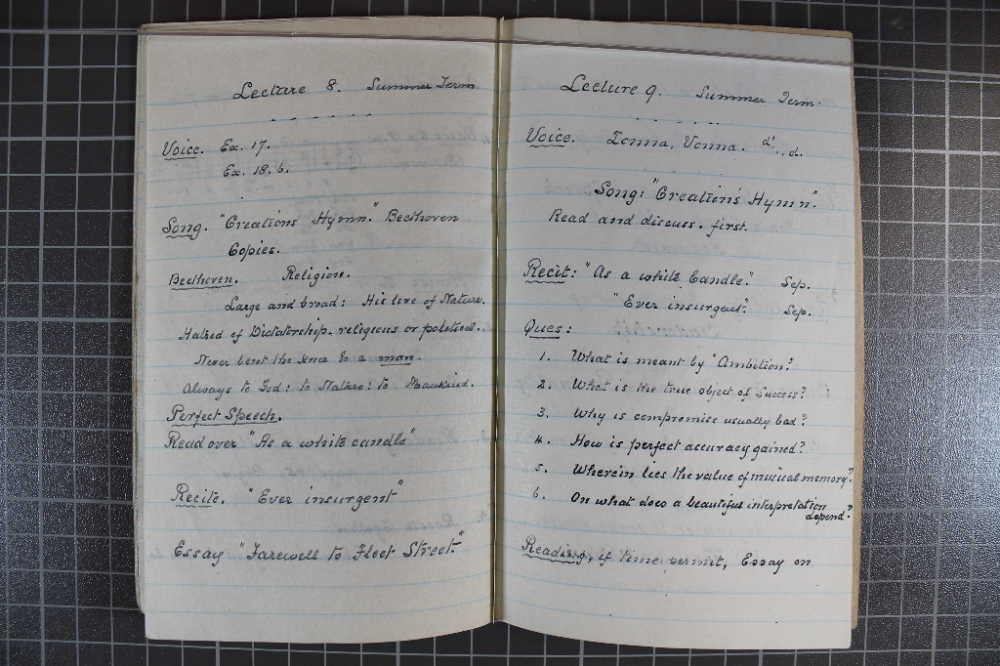 Lecture 8. Summer Term
Voice. Ex. 17.
Ex. 18. 6.
Song. "Creation's Hymn." Beethoven
Copies.
Beethoven. Religion.
Large and broad: His love of Nature.
Hatred of Dictatorship, religious or political.
Never bent the knee to a man.
Always to God: to Nature: to Mankind.
Perfect Speech.
Read over "As a white candle"
Recite. "Ever insurgent"
Essay "Farewell to Fleet Street."
Lecture 9. Summer Term.
Voice. Lonna, Vonna. d'..d.
Song: "Creation's Hymn."
Read and discuss. first.
Recit: "As a white Candle." Sep.
"Ever insurgent". Sep.
Ques:
1. What is meant by "Ambition?
2. What is the true object of Success?
3. Why is compromise usually bad?
4. How is perfect accuracy gained?
5. Wherein lies the value of musical memory?
6. On what does a beautiful interpretation
depend?
Reading, if time permit, Essay on